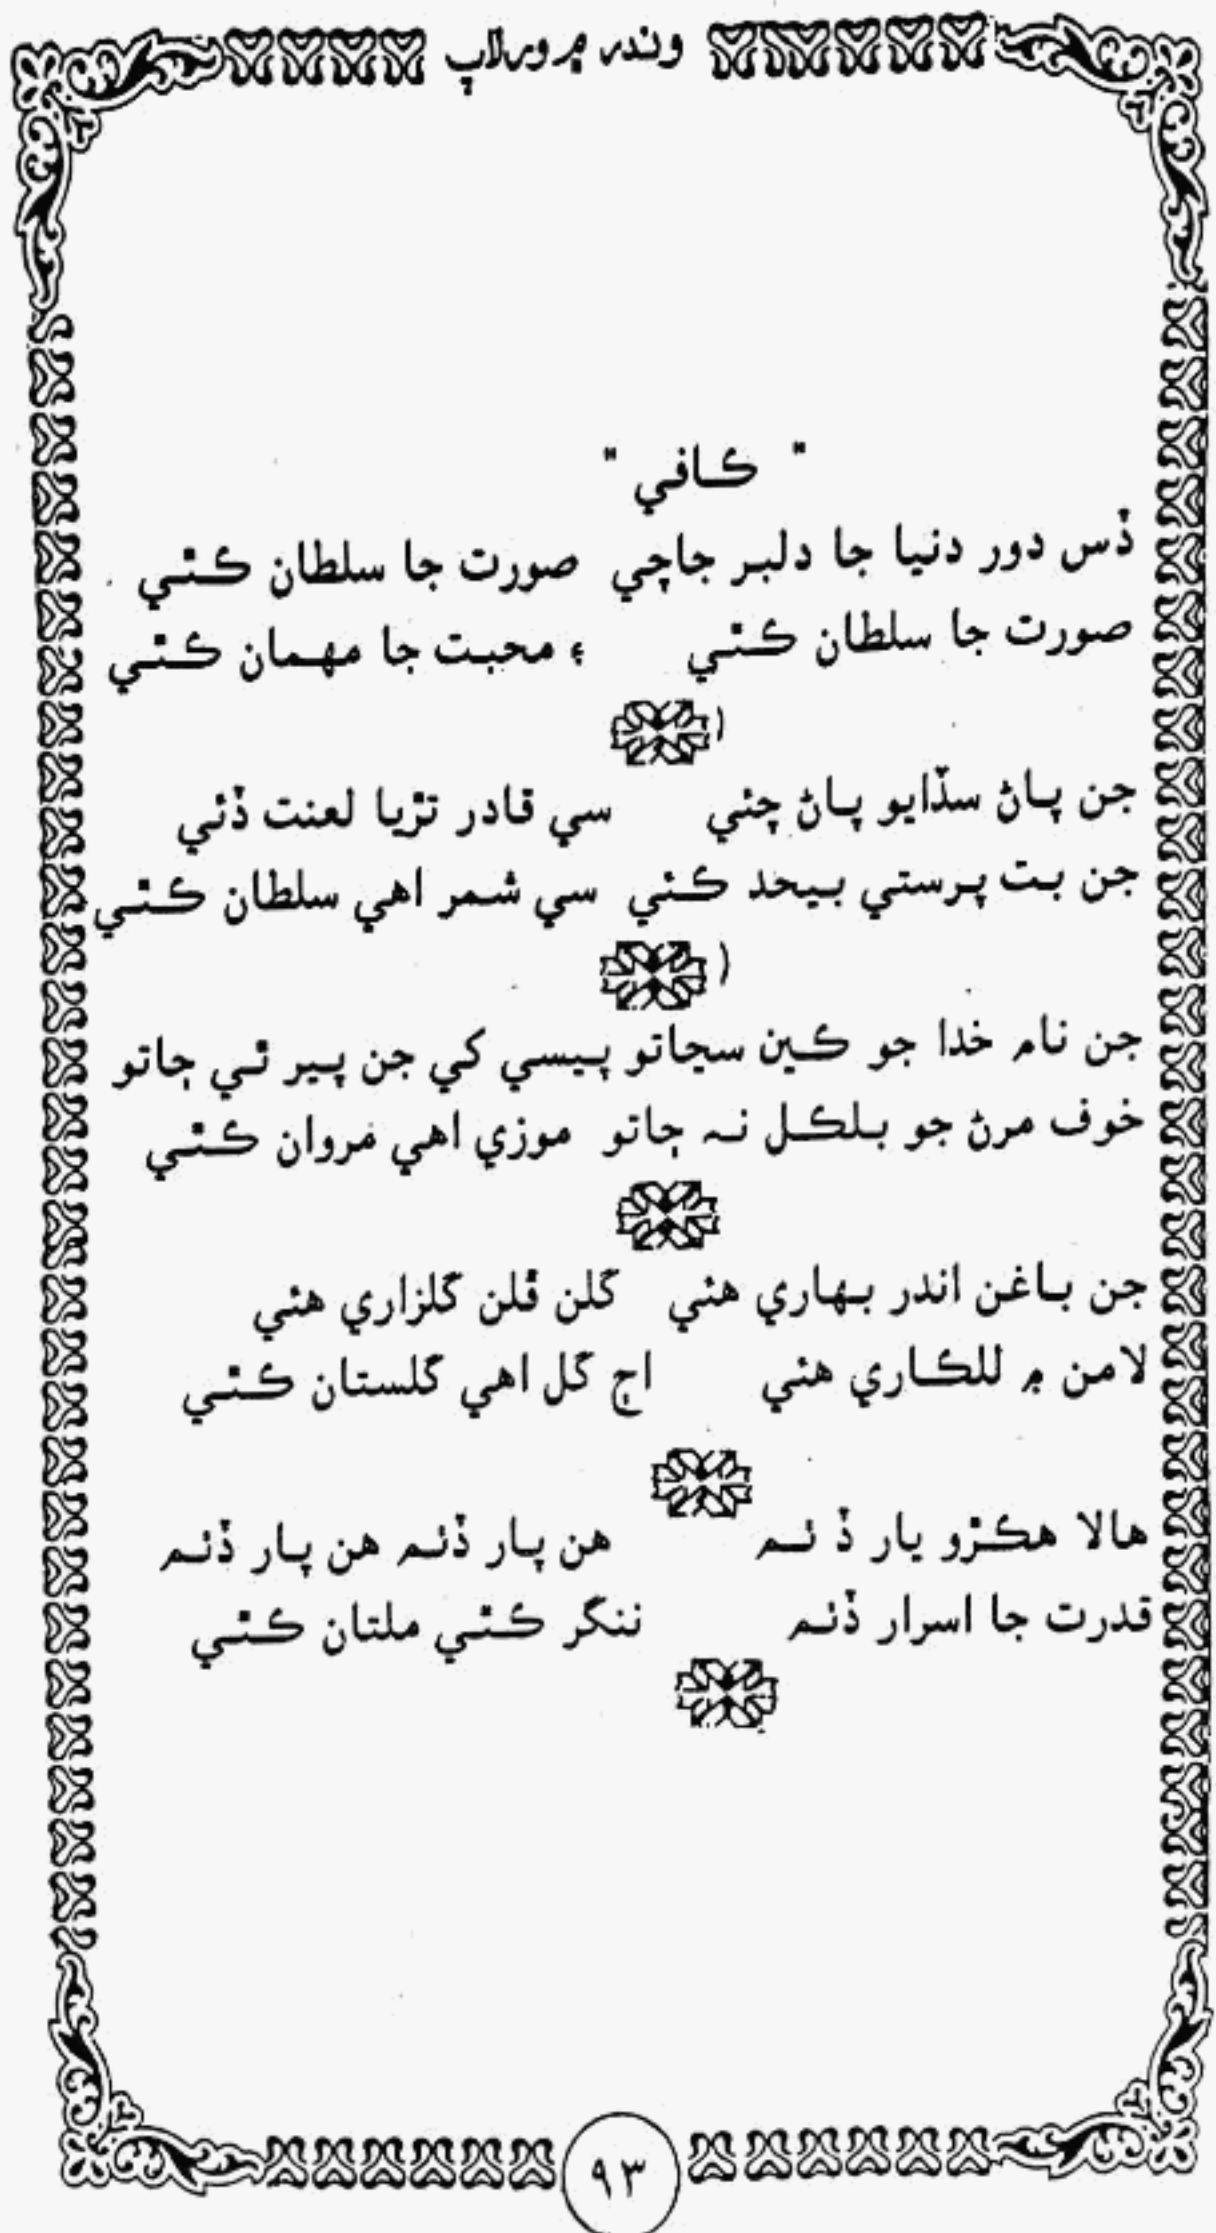 وندر ۾ ورلاپ
" ڪافي "
ڏس دور دنيا جا دلبر جاچي صورت جا سلطان ڪٿي
صورت جا سلطان ڪٿي ۽ محبت جا مهمان ڪٿي
جن پاڻ سڏايو پاڻ چئي سي قادر تڙيا لعنت ڏئي
جن بت پرستي بيحد ڪئي سي شمر اهي سلطان ڪٿي
جن نام خدا جو ڪين سڃاتو پيسي کي جن پير ٿي ڄاتو
خوف مرڻ جو بلڪل نہ ڄاتو موزي اهي مروان ڪٿي
جن باغن اندر بهاري هئي گلن ڦلن گلزاري هئي
لامن ۾ للڪاري هئي اڄ گل اهي گلستان ڪٿي
هالا هڪڙو يار ڏ ئم هن پار ڏئم هن پار ڏئم
قدرت جا اسرار ڏئم ننگر ڪٿي ملتان ڪٿي
۹۳